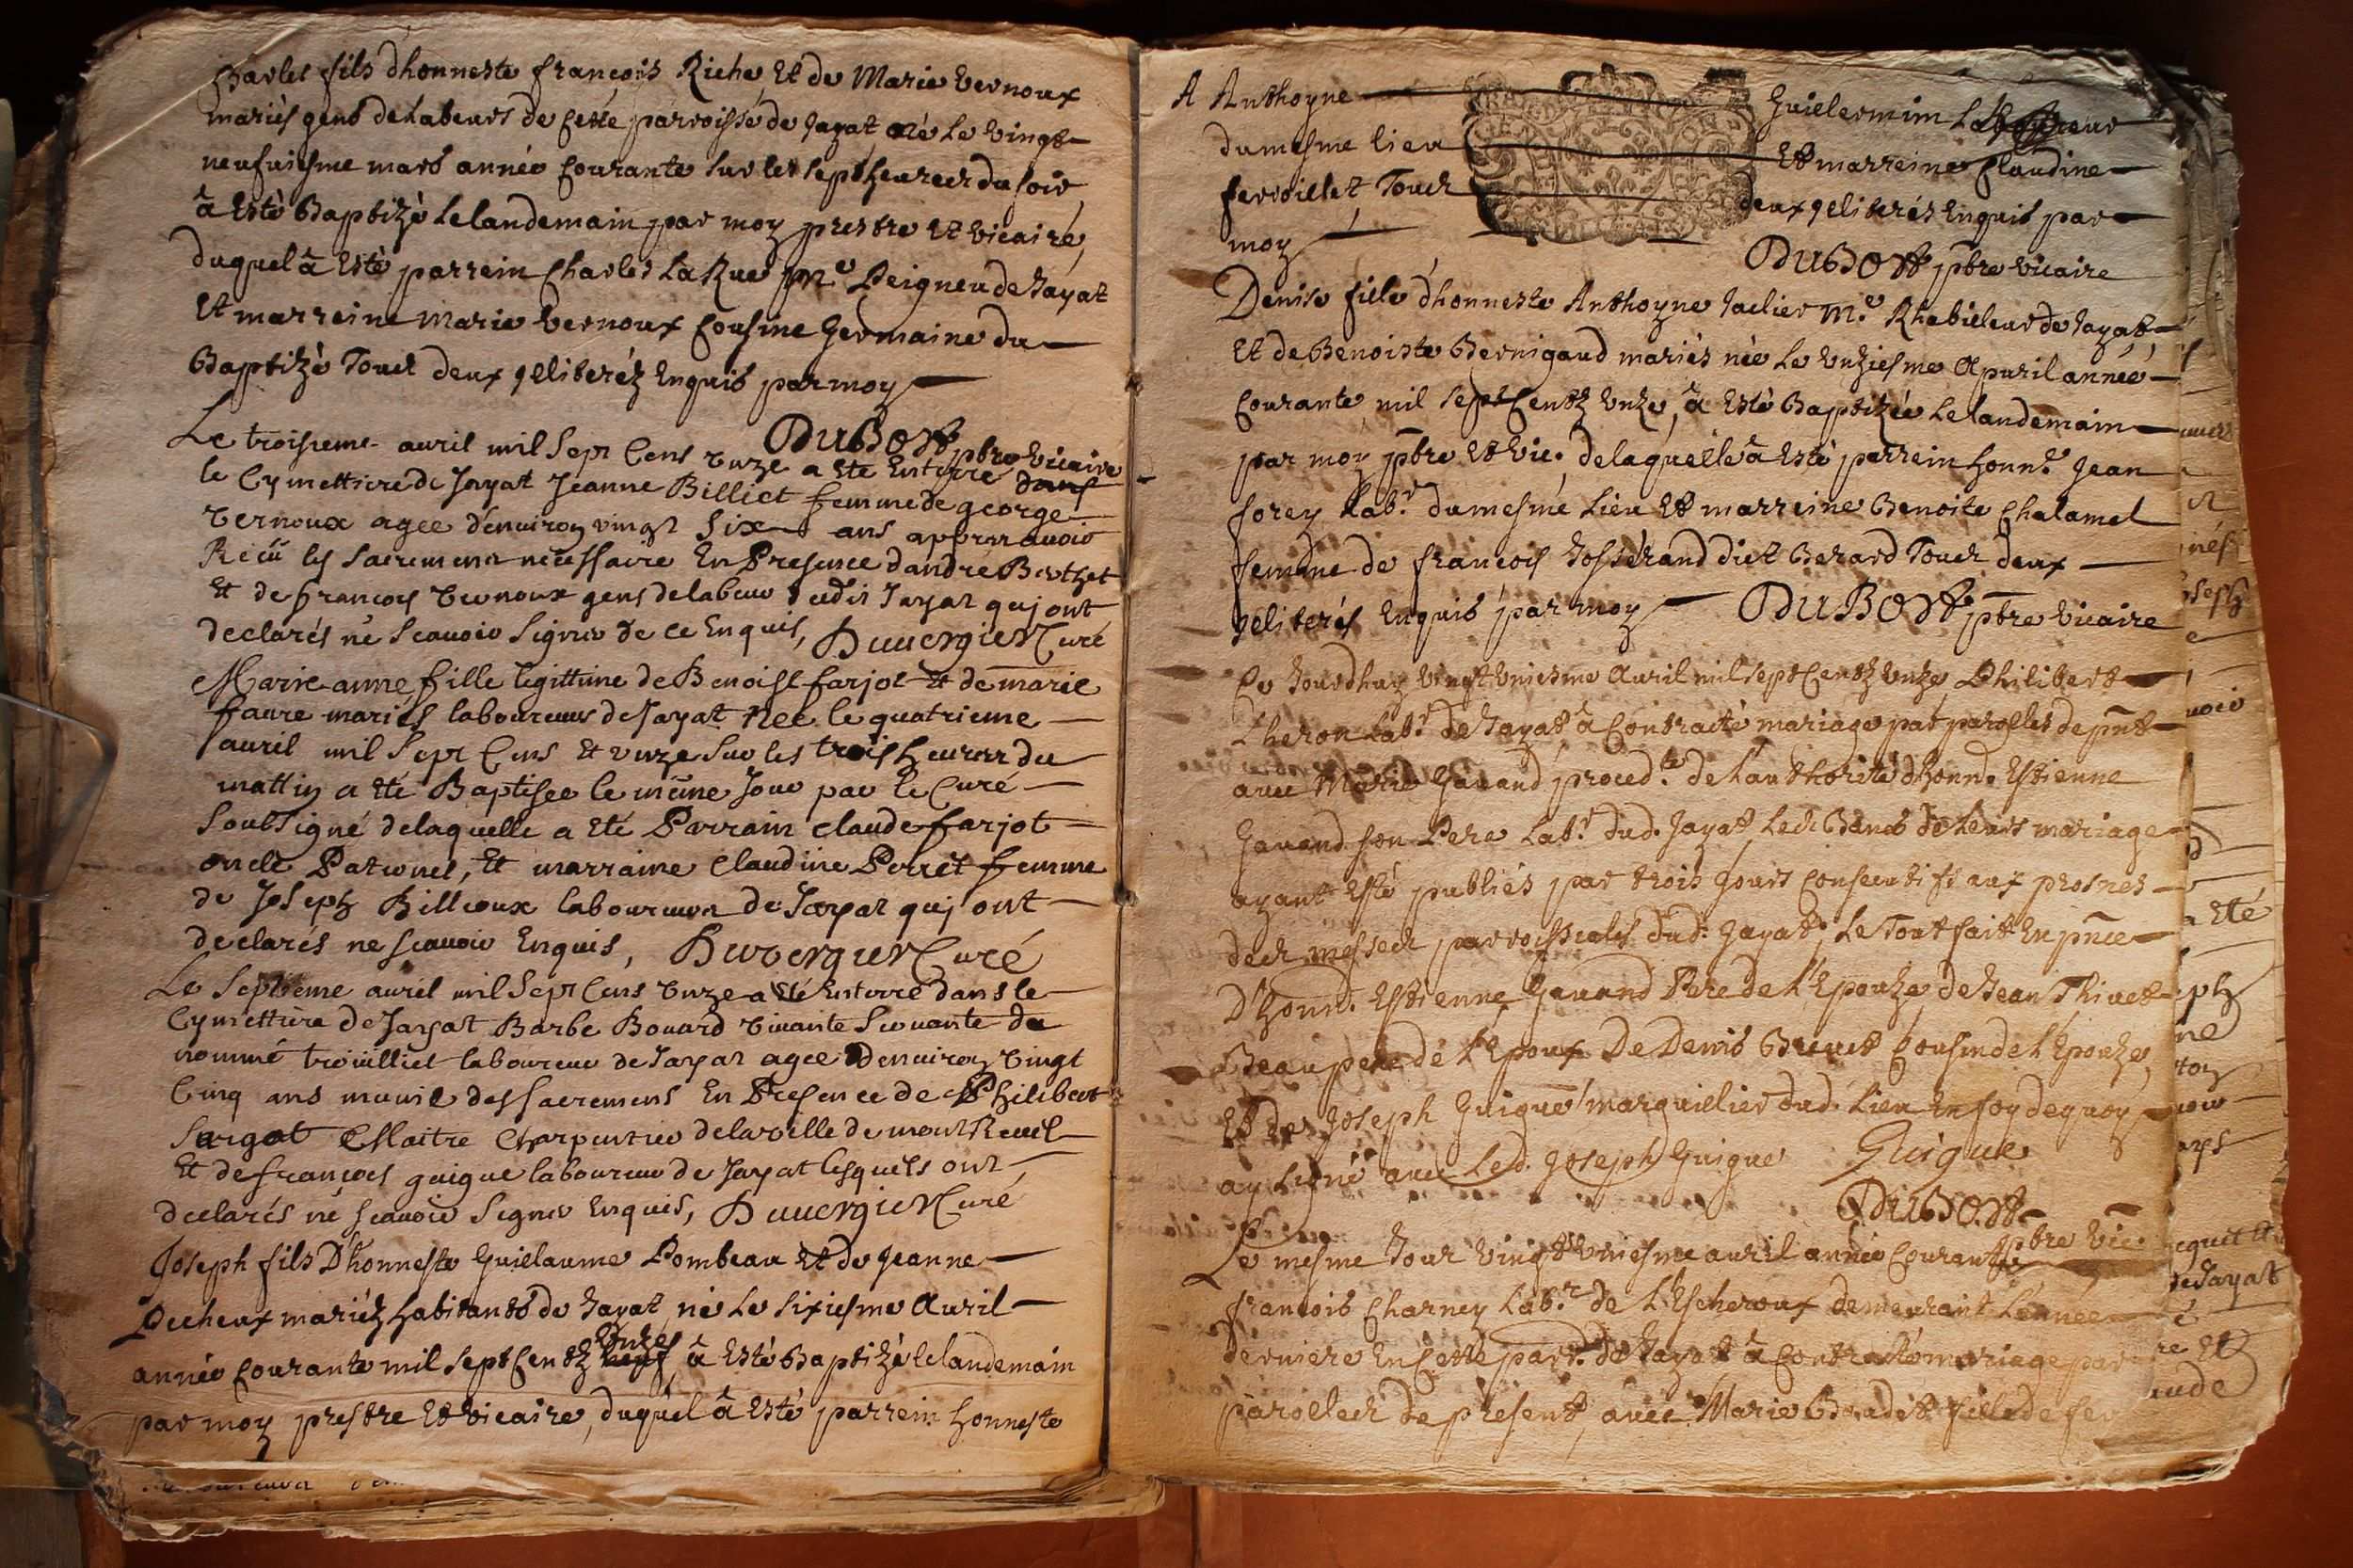 Charles fils d'honneste françois Riche, Et de Marie Vernoux
mariés gens de Labeurs de Cette parroisse de Jayat né Le vingt-
neufuiesme mars année Courante sur les sept heures du soir
à Esté Baptizé Le landemain par moy prestre Et vicaire,
duquel à Esté parrein Charles La Rue Me Peigneu de Jayat
Et marreine Marie Vernoux Cousine Germaine du
Baptizé Tous deux illiteréz Enquis par moy
DUBOST pbre vicaire
Le troisieme auril mil Sept Cens vnze a Eté Enterré dans
le Cymettiere de Jayat Jeanne Billiet femme de george
vernoux agee d'enuiron vingt Six ans appres auoir
Reçü les Sacremens necessaire En Presence d'andré Berthet
Et de françois Vernoux gens de labeur dudit Jayat qui ont
declarés né Scauoir Signer de ce Enquis, Duuergier Curé
Marie anne fille legittime de Benoist farjot Et de marie
faure mariés laboureurs de Jayat Née le quatrieme
auril mil Sept Cens Et vnze Sur les trois heures du
mattin a Eté Baptisee le même Jour par le Curé
Soubsigné delaquelle a Eté Parrain Claude farjot
oncle Paternel, Et marraine Claudine Perret femme
de Joseph Billioux laboureurs de Jayat qui ont
declarés ne scauoir Enquis, Duvergier Curé
Le Septieme auril mil Sept Cens vnze a Eté Enterré dans le
Cymettiere de Jayat Barbe Bouard viuante Seruante du
nommé troüilliet laboureur de Jayat agee denuiron vingt
Cinq ans munie des sacremens En Presence de Philibert
Sargot Maitre Charpentier de la ville de mont Reuel
Et de françois guigue laboureur de Jayat lesquels ont
declarés né scauoir Signer Enquis, Duuergier Curé
Joseph fils D'honneste Guielaume Pombeau Et de Jeanne
Pecheux mariéz habitants de Jayat né Le sixiesme Auril
Vnzes
année Courante mil sept Centz neuf, à Esté Baptizé le landemain
par moy prestre Et vicaire, duquel à Esté parrein honneste
A Anthoyne Guielermin
dumesme lieu Et marreine Claudine
ferroilliet Tous deux illiterés Enquis par
moy
DUBOST pbre vicaire
Denise fille d'honneste Anthoyne Jaclier Me Rhabileur de Jayat,
Et de Benoiste Bernigaud mariés née Le vnziesme Apuril année
Courante mil sept Centz vnze, à Esté Baptizée Le landemain
par moy pbre Et vic. delaquelle à Esté parrein honne Jean
forey Labr. dumesme Lieu Et marreine Benoite Chalamel
femme de françois Josserand dict Berard Tous deux
illiterés Enquis par moy DUBOST pbre vicaire
Ce Jourdhuy vingt vniesme Auril mil sept Centz vnze Philibert
L'heron Labr de Jayat à Contracté mariage par parolles de pnt
auec Marie Gauand proced.te de L'authorité d'honn. Estienne
Gauand son Pere Labr dud. Jayat, Les Bancs de Leurs mariage
ayant Esté publiés par trois Jours Consecutifs aux prosnes
des messes parroissiales dud. Jayat, Le Tout fait En pnce
D'honn. Estienne Gauand Pere de L'Epouze, de Jean Thiuet
Beaupere de L'Epoux De Denis Breuet Cousin de L'Epouze,
Et de Joseph Guigue marguillier dud. Lieu En foy dequoy
ay signé auec Led. Joseph Guigue Guigue
DUBOST
pbre vic.
Le mesme Jour vingt vniesme auril année Courante
françois Charney Labr. de L'Escheroux demeurant L'année
derniere En Cette parr. de Jayat à Contracté mariage par
parolles de present, auec Marie Baudet fille de
a Eté
de Jayat